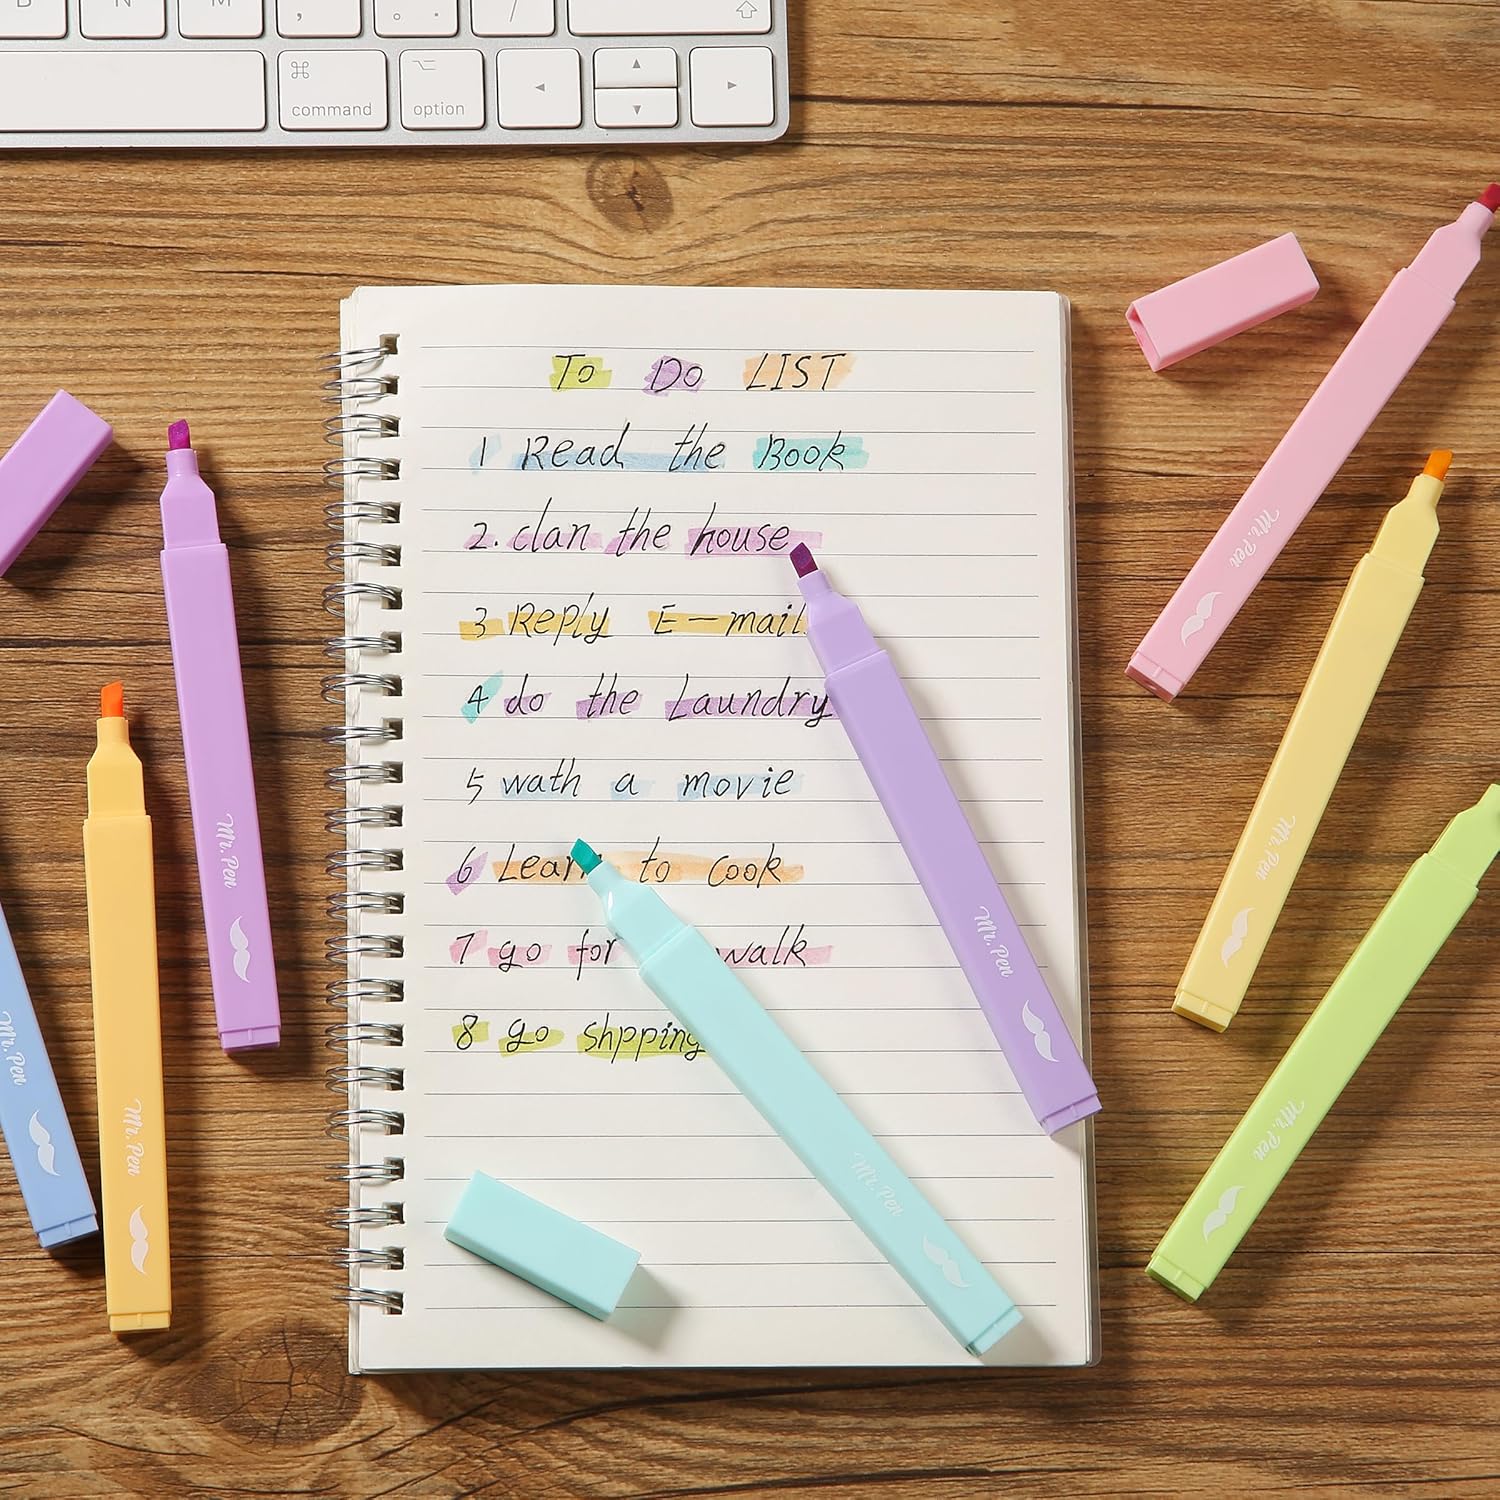 B N M , . /
command option
To Do LIST
1 Read the Book
2. clan the house
3 Reply E-mail
4 do the Laundry
5 wath a movie
6 Learn to cook
7 go for walk
8 go shpping
Mr. Pen
Mr. Pen
Mr. Pen
Mr. Pen
Mr. Pen
Mr. Pen
Mr. Pen
Mr. Pen